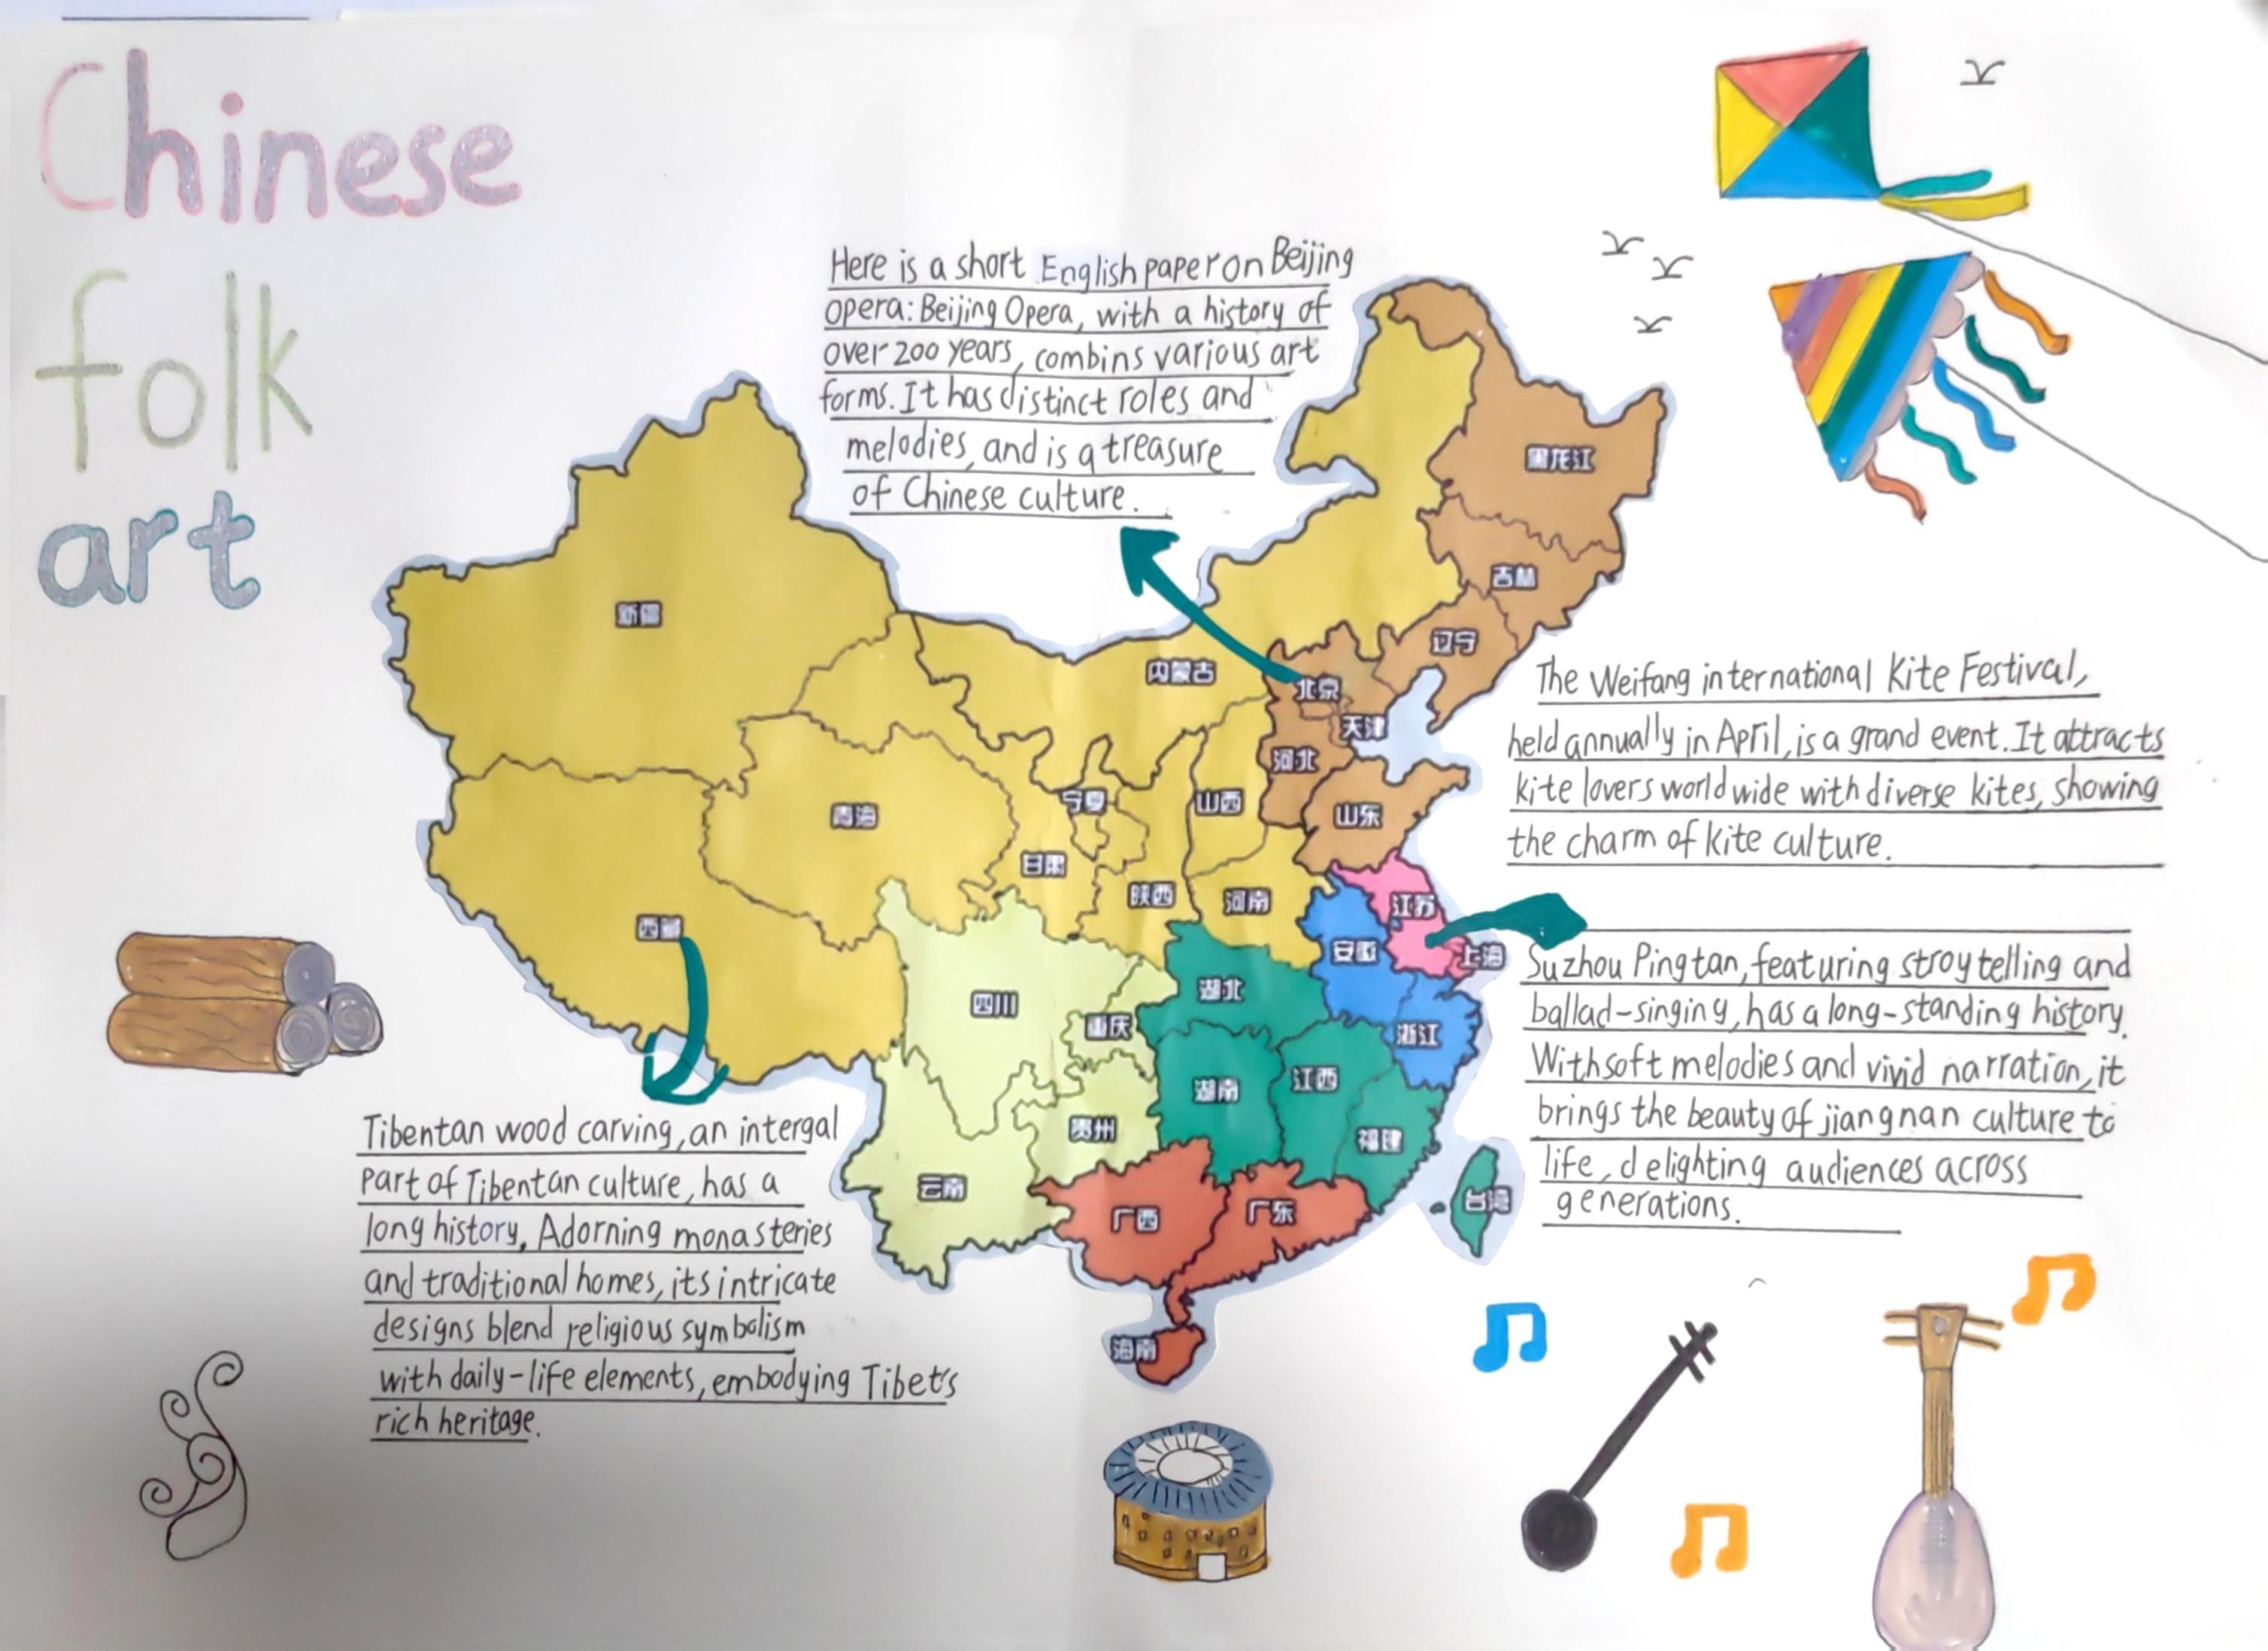 Chinese
folk
art
Here is a short English paper on Beijing
opera: Beijing Opera, with a history of
over 200 years, combins various art
forms. It has distinct roles and
melodies, and is a treasure
of Chinese culture.
黑龙江
吉林
辽宁
新疆
内蒙古
北京
天津
河北
山西
山东
宁夏
青海
甘肃
陕西
河南
江苏
安徽
上海
西藏
四川
重庆
湖北
浙江
湖南
江西
贵州
福建
云南
广西
广东
台湾
海南
The Weifang international Kite Festival,
held annually in April, is a grand event. It attracts
kite lovers world wide with diverse kites, showing
the charm of kite culture.
Suzhou Pingtan, featuring stroytelling and
ballad-singing, has a long-standing history.
With soft melodies and vivid narration, it
brings the beauty of jiangnan culture to
life, delighting audiences across
generations.
Tibentan wood carving, an intergal
part of Tibentan culture, has a
long history, Adorning monasteries
and traditional homes, its intricate
designs blend religious symbolism
with daily-life elements, embodying Tibet's
rich heritage.